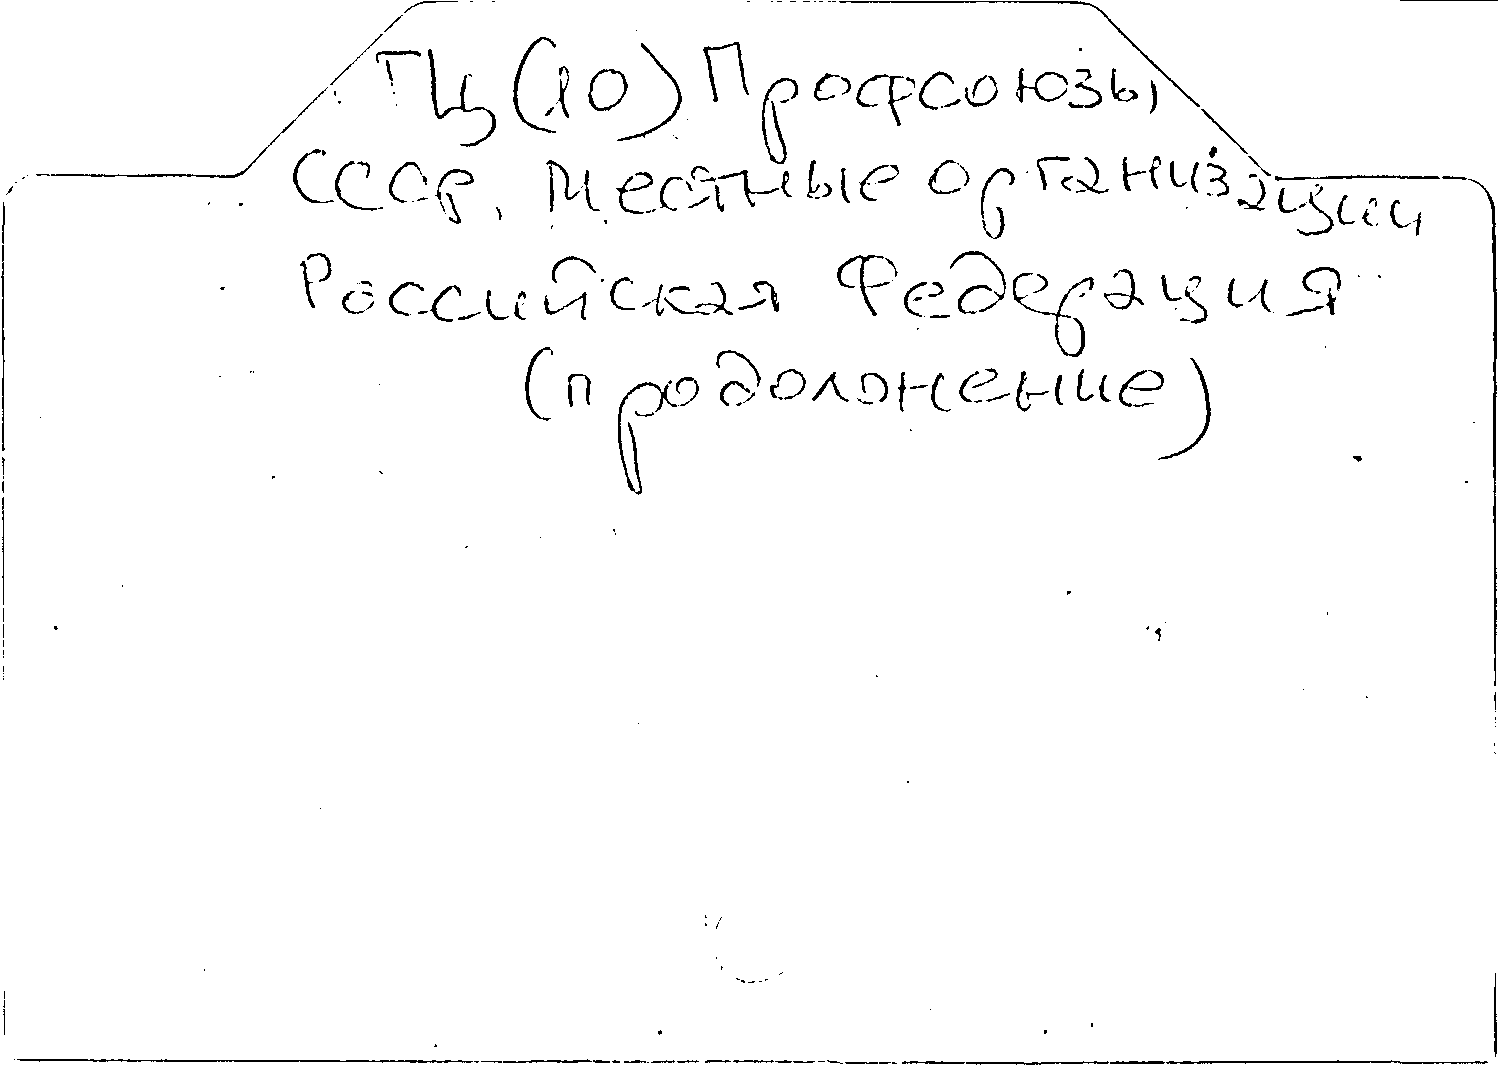 ТЦ(10) Профсоюзы
СССР. Местные организации
Российская Федерация
(продолжение)